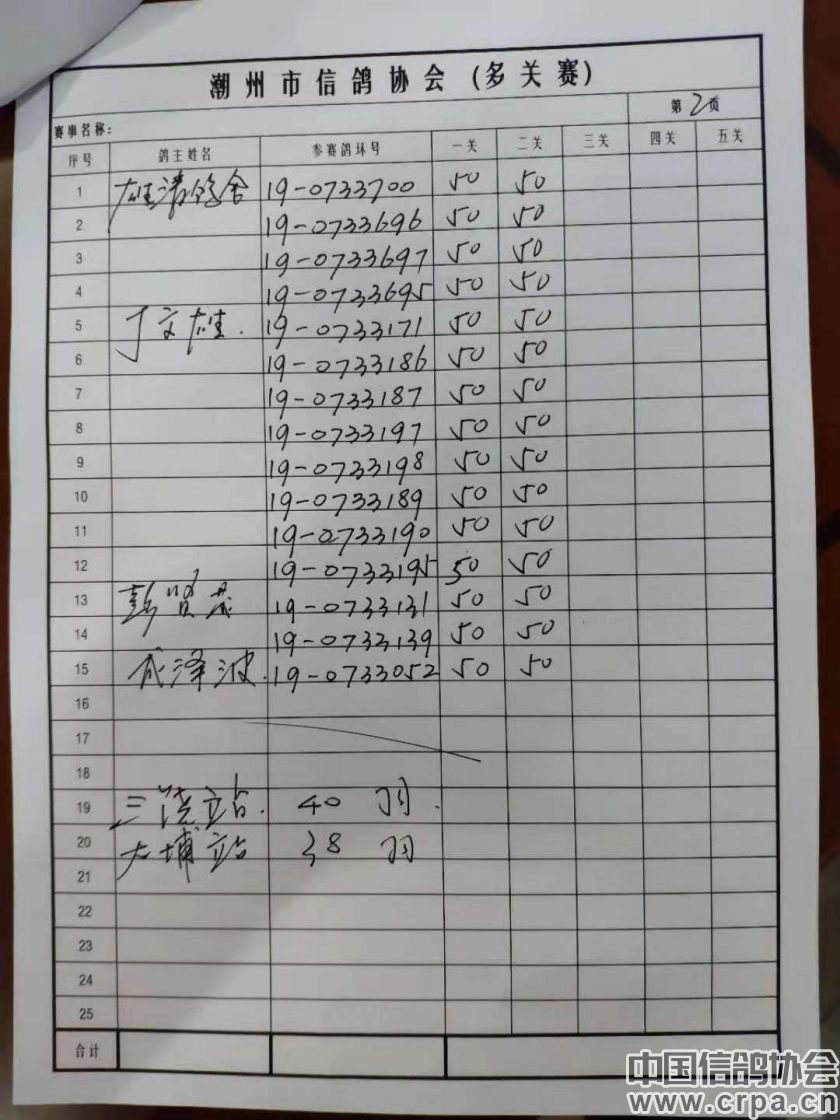 潮州市信鸽协会(多关赛)
赛事名称: 第2页
序号 鸽主姓名 参赛鸽环号 一关 二关 三关 四关 五关
1 雄涛鸽舍 19-0733700 50 50
2 19-0733696 50 50
3 19-0733697 50 50
4 19-0733695 50 50
5 丁文雄. 19-0733171 50 50
6 19-0733186 50 50
7 19-0733187 50 50
8 19-0733197 50 50
9 19-0733198 50 50
10 19-0733189 50 50
11 19-0733190 50 50
12 19-0733195 50 50
13 彭贤茂 19-0733131 50 50
14 19-0733139 50 50
15 泽波. 19-0733052 50 50
16
17
18
19 三饶站. 40 羽.
20 大埔站 38 羽
21
22
23
24
25
合计
中国信鸽协会
www.crpa.cn